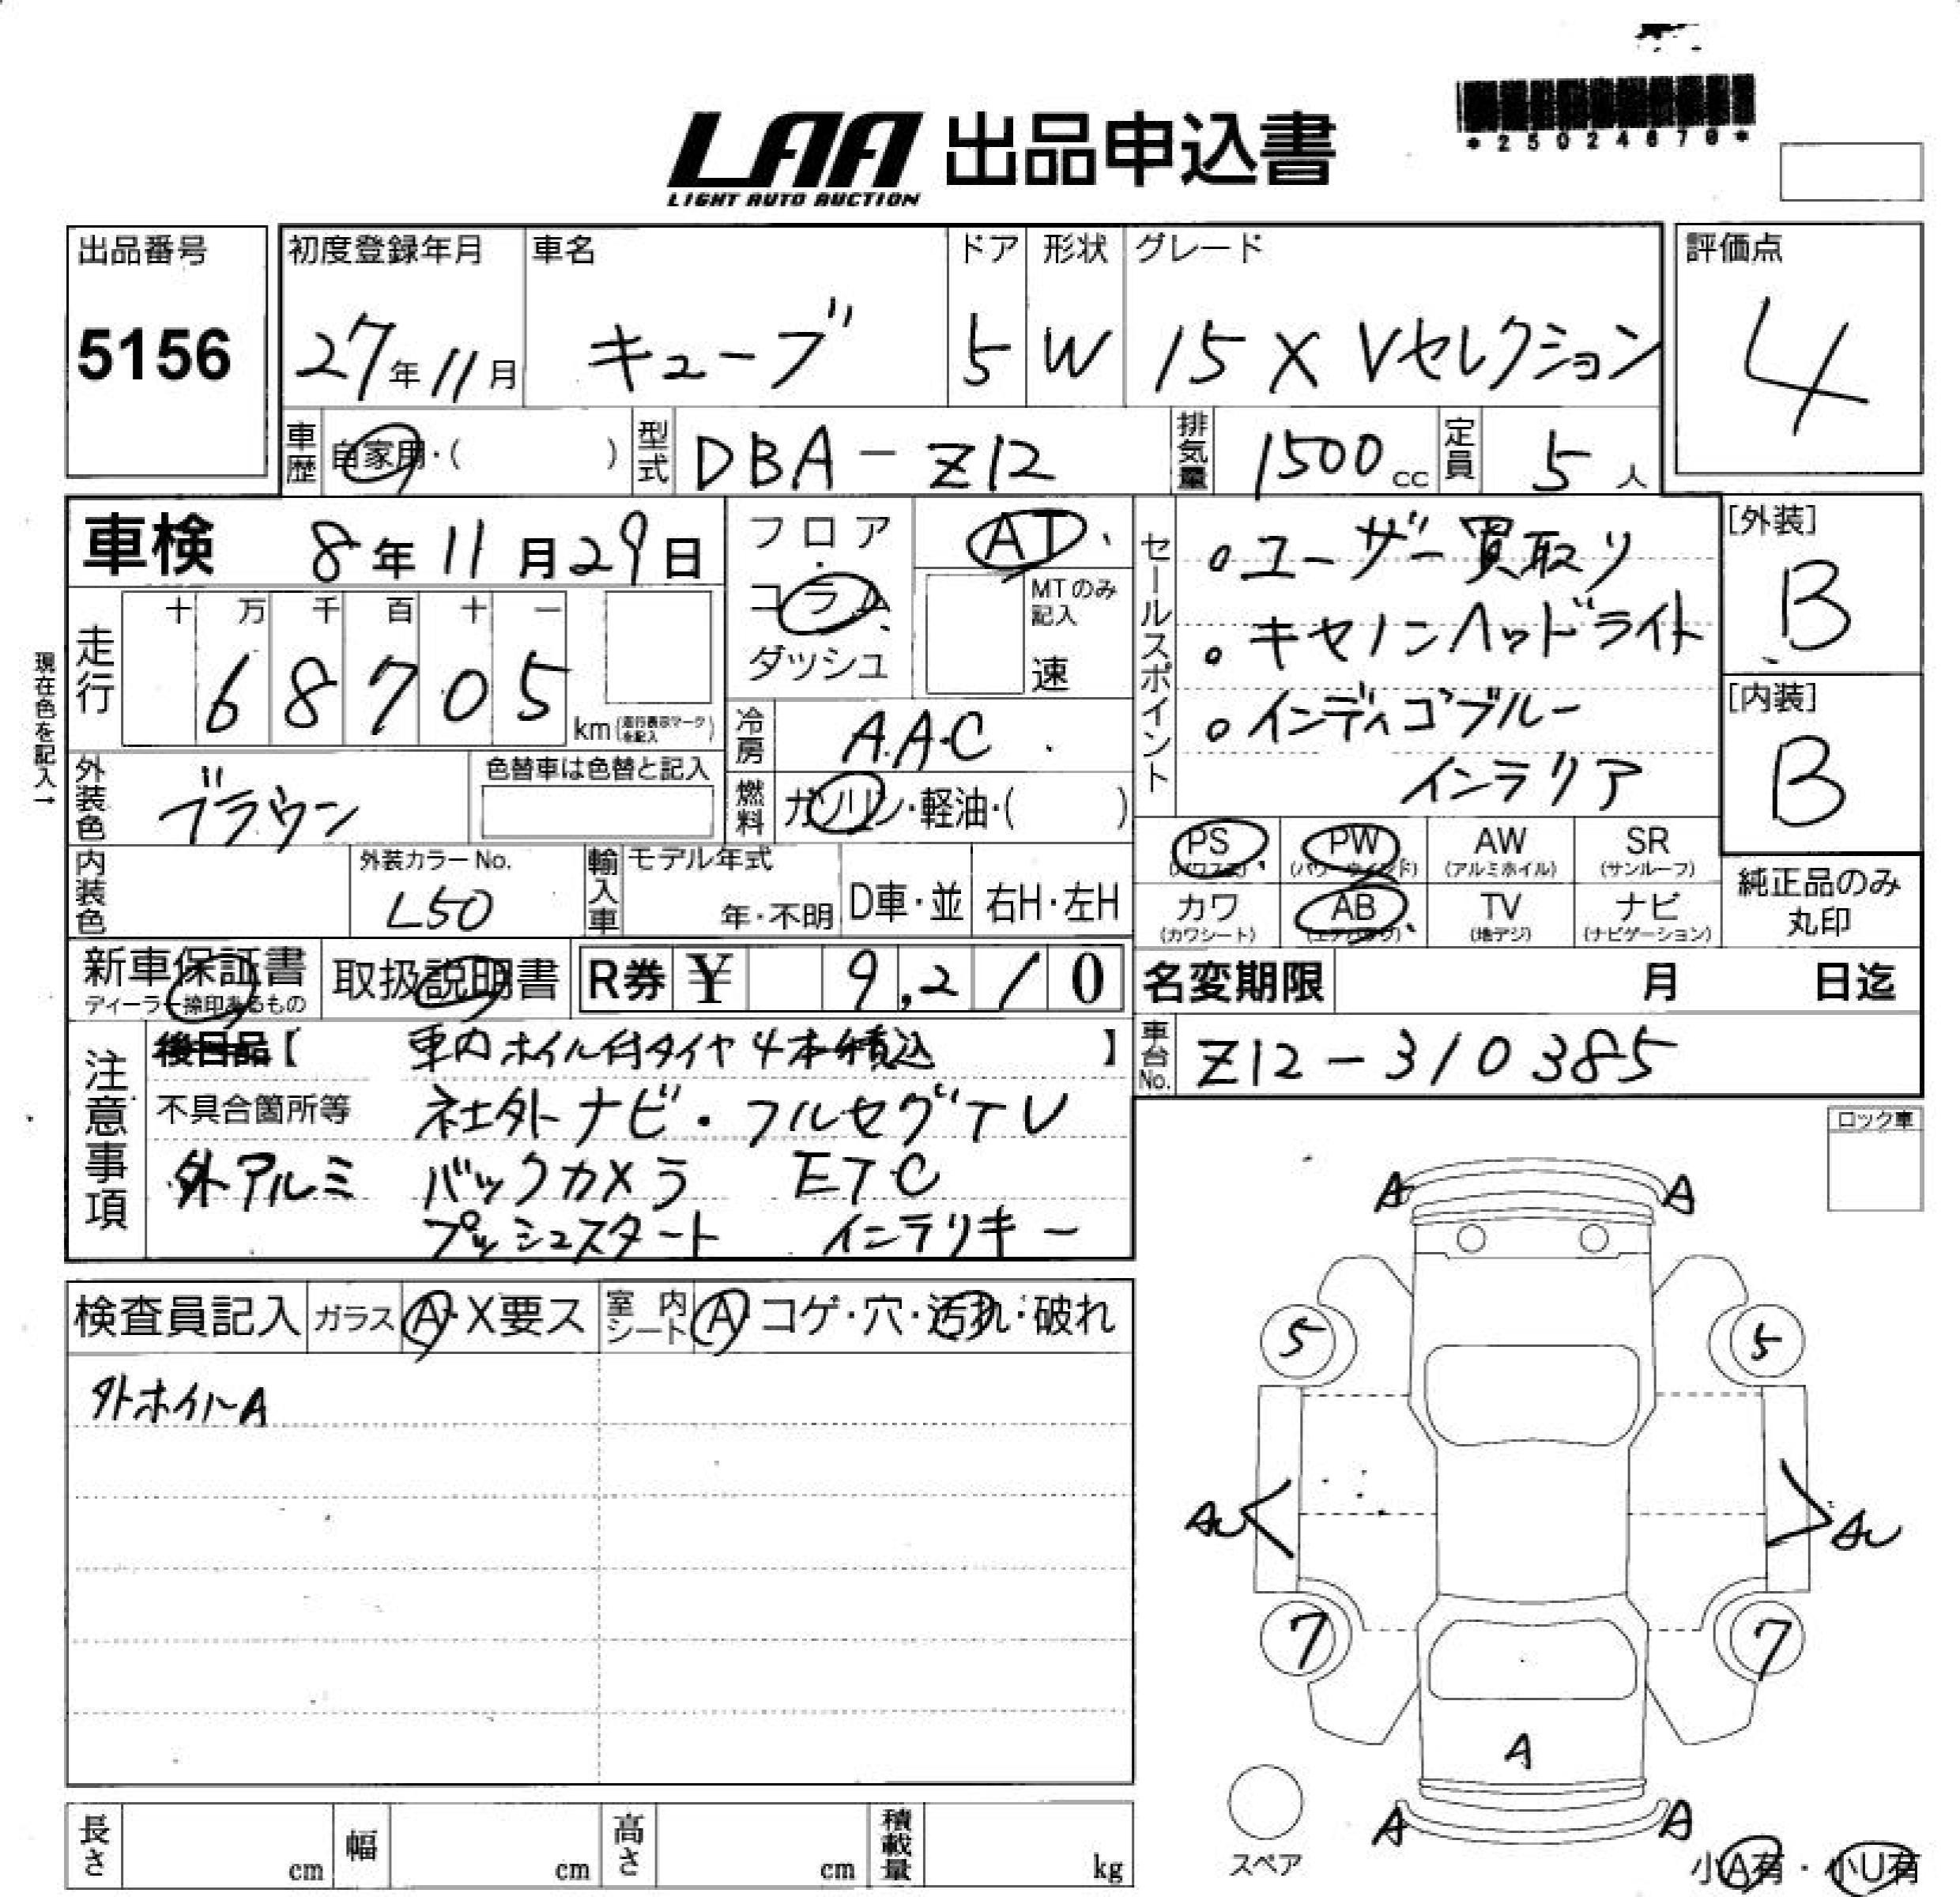 *25024670*
LAA 出品申込書
LIGHT AUTO AUCTION
出品番号 初度登録年月 車名 ドア 形状 グレード 評価点
5156 27年11月 キューブ 5 W 15X Vセレクション 4
車歴 自家用・( ) 型式 DBA-Z12 排気量 1500cc 定員 5人
車検 8年11月29日
フロア・コラム・ダッシュ
AT
MTのみ記入
速
セールスポイント
・ユーザー買取り
・キセノンヘッドライト
・インディゴブルー
インテリア
[外装]
B
[内装]
B
現在色を記入→
走行 十 万 千 百 十 一
68705 km(走行表示マークを記入)
冷房 AAC
外装色 ブラウン 色替車は色替と記入
燃料 ガソリン・軽油・( )
PS (パワステ) PW (パワーウインド) AW (アルミホイル) SR (サンルーフ)
カワ (カワシート) AB (エアバッグ) TV (地デジ) ナビ (ナビゲーション)
純正品のみ
丸印
内装色 外装カラーNo. L50 輸入車 モデル年式 年・不明 D車・並 右H・左H
新車保証書 ディーラー捺印あるもの 取扱説明書 R券 ¥ 9,210
名変期限 月 日迄
車台No. Z12-310385
注意事項
後日品【 車内ホイル付タイヤ4本積込 】
不具合箇所等 社外ナビ・フルセグTV
外アルミ バックカメラ ETC
プッシュスタート インテリキー
ロック車
検査員記入 ガラス A・X要ス 室内シート A・コゲ・穴・汚れ・破れ
外ホイルA
A A
5 5
AU AU
7 7
A
A A
スペア
小A有・小U有
長さ cm 幅 cm 高さ cm 積載量 kg